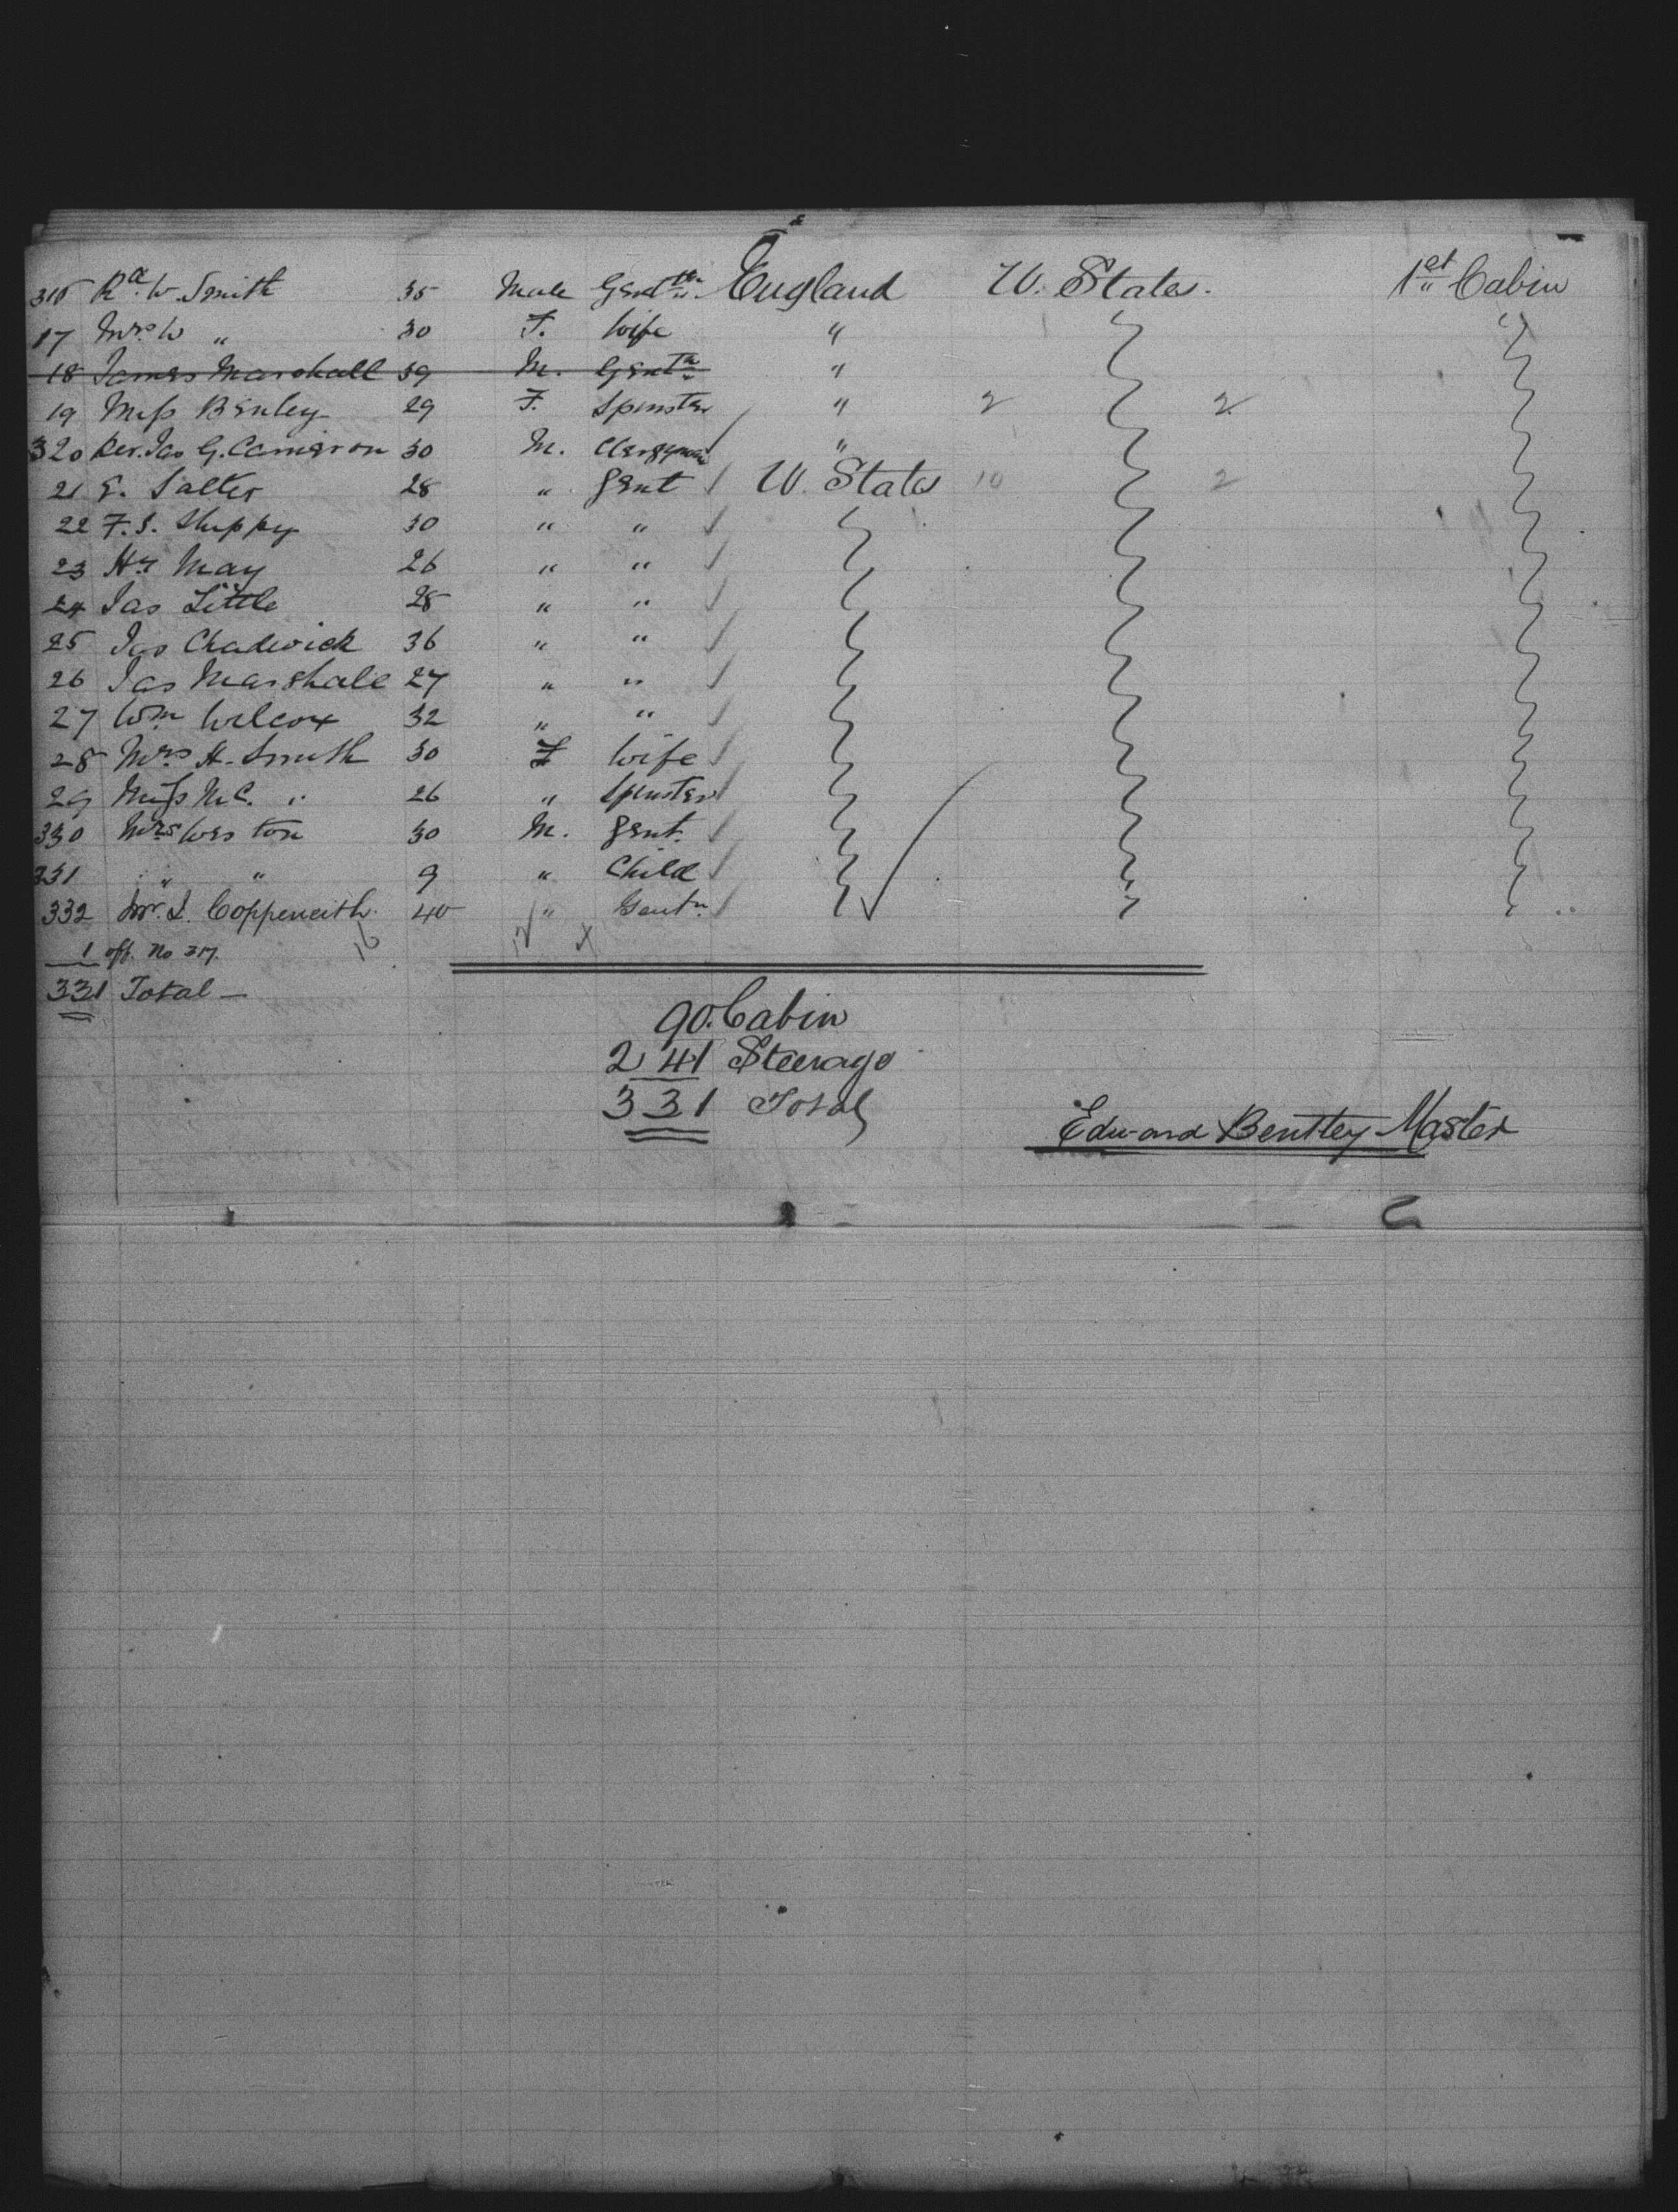 316 Rd. W. Smith 35 Male Gentn. England U. States. 1st Cabin
17 Mrs W " 30 F. Wife " "
18 James Marshall 39 M. Gentn "
19 Miss Benley 29 F. Spinster " 2 2
320 Rev. Jas G. Cameron 30 M. Clergyman "
21 E. Salter 28 " Gent U. States 10 2
22 F. S. Shuppy 30 " "
23 Hy May 26 " "
24 Jas Little 28 " "
25 Jas Chadwick 36 " "
26 Jas Marshall 27 " "
27 Wm Wilcox 32 " "
28 Mrs H. Smith 30 F Wife
29 Miss M C. " 26 " Spinster
330 Mrs Weston 30 M. Gent.
331 " " 9 " Child
332 Mr. L. Coppeneith. 40 " Gentn
1 off. No 317.
331 Total —
90. Cabin
241 Steerage
331 Total
Edward Bentley Master